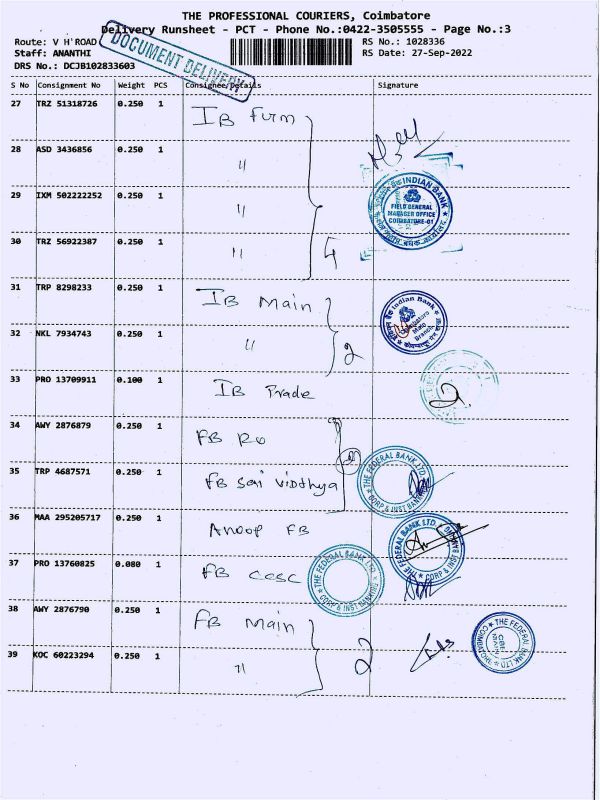 THE PROFESSIONAL COURIERS, Coimbatore
Delivery Runsheet - PCT - Phone No.:0422-3505555 - Page No.:3
Route: V H'ROAD
RS No.: 1028336
Staff: ANANTHI
RS Date: 27-Sep-2022
DRS No.: DCJB102833603
DOCUMENT DELIVERY
S No Consignment No Weight PCS Consignee/Details Signature
27 TRZ 51318726 0.250 1 IB Furm
28 ASD 3436856 0.250 1 "
29 IXM 502222252 0.250 1 "
INDIAN BANK
FIELD GENERAL
MANAGER OFFICE
COIMBATORE-01
30 TRZ 56922387 0.250 1 "
31 TRP 8298233 0.250 1 IB Main
Indian Bank
Coimbatore
Main
Branch
32 NKL 7934743 0.250 1 " 2
33 PRO 13709911 0.100 1 IB Trade
34 AWY 2876879 0.250 1 FB RO
35 TRP 4687571 0.250 1 FB Sai Vidthya
THE FEDERAL BANK LTD
CORP & INST BANKING
36 MAA 295205717 0.250 1 Anoop FB
THE FEDERAL BANK LTD.
CORP & INST BANKING
37 PRO 13760825 0.080 1 FB CCSC
THE FEDERAL BANK LTD.
CORP & INST BANKING
38 AWY 2876790 0.250 1 FB Main
THE FEDERAL BANK LTD
CBE
MAIN
39 KOC 60223294 0.250 1 " 2